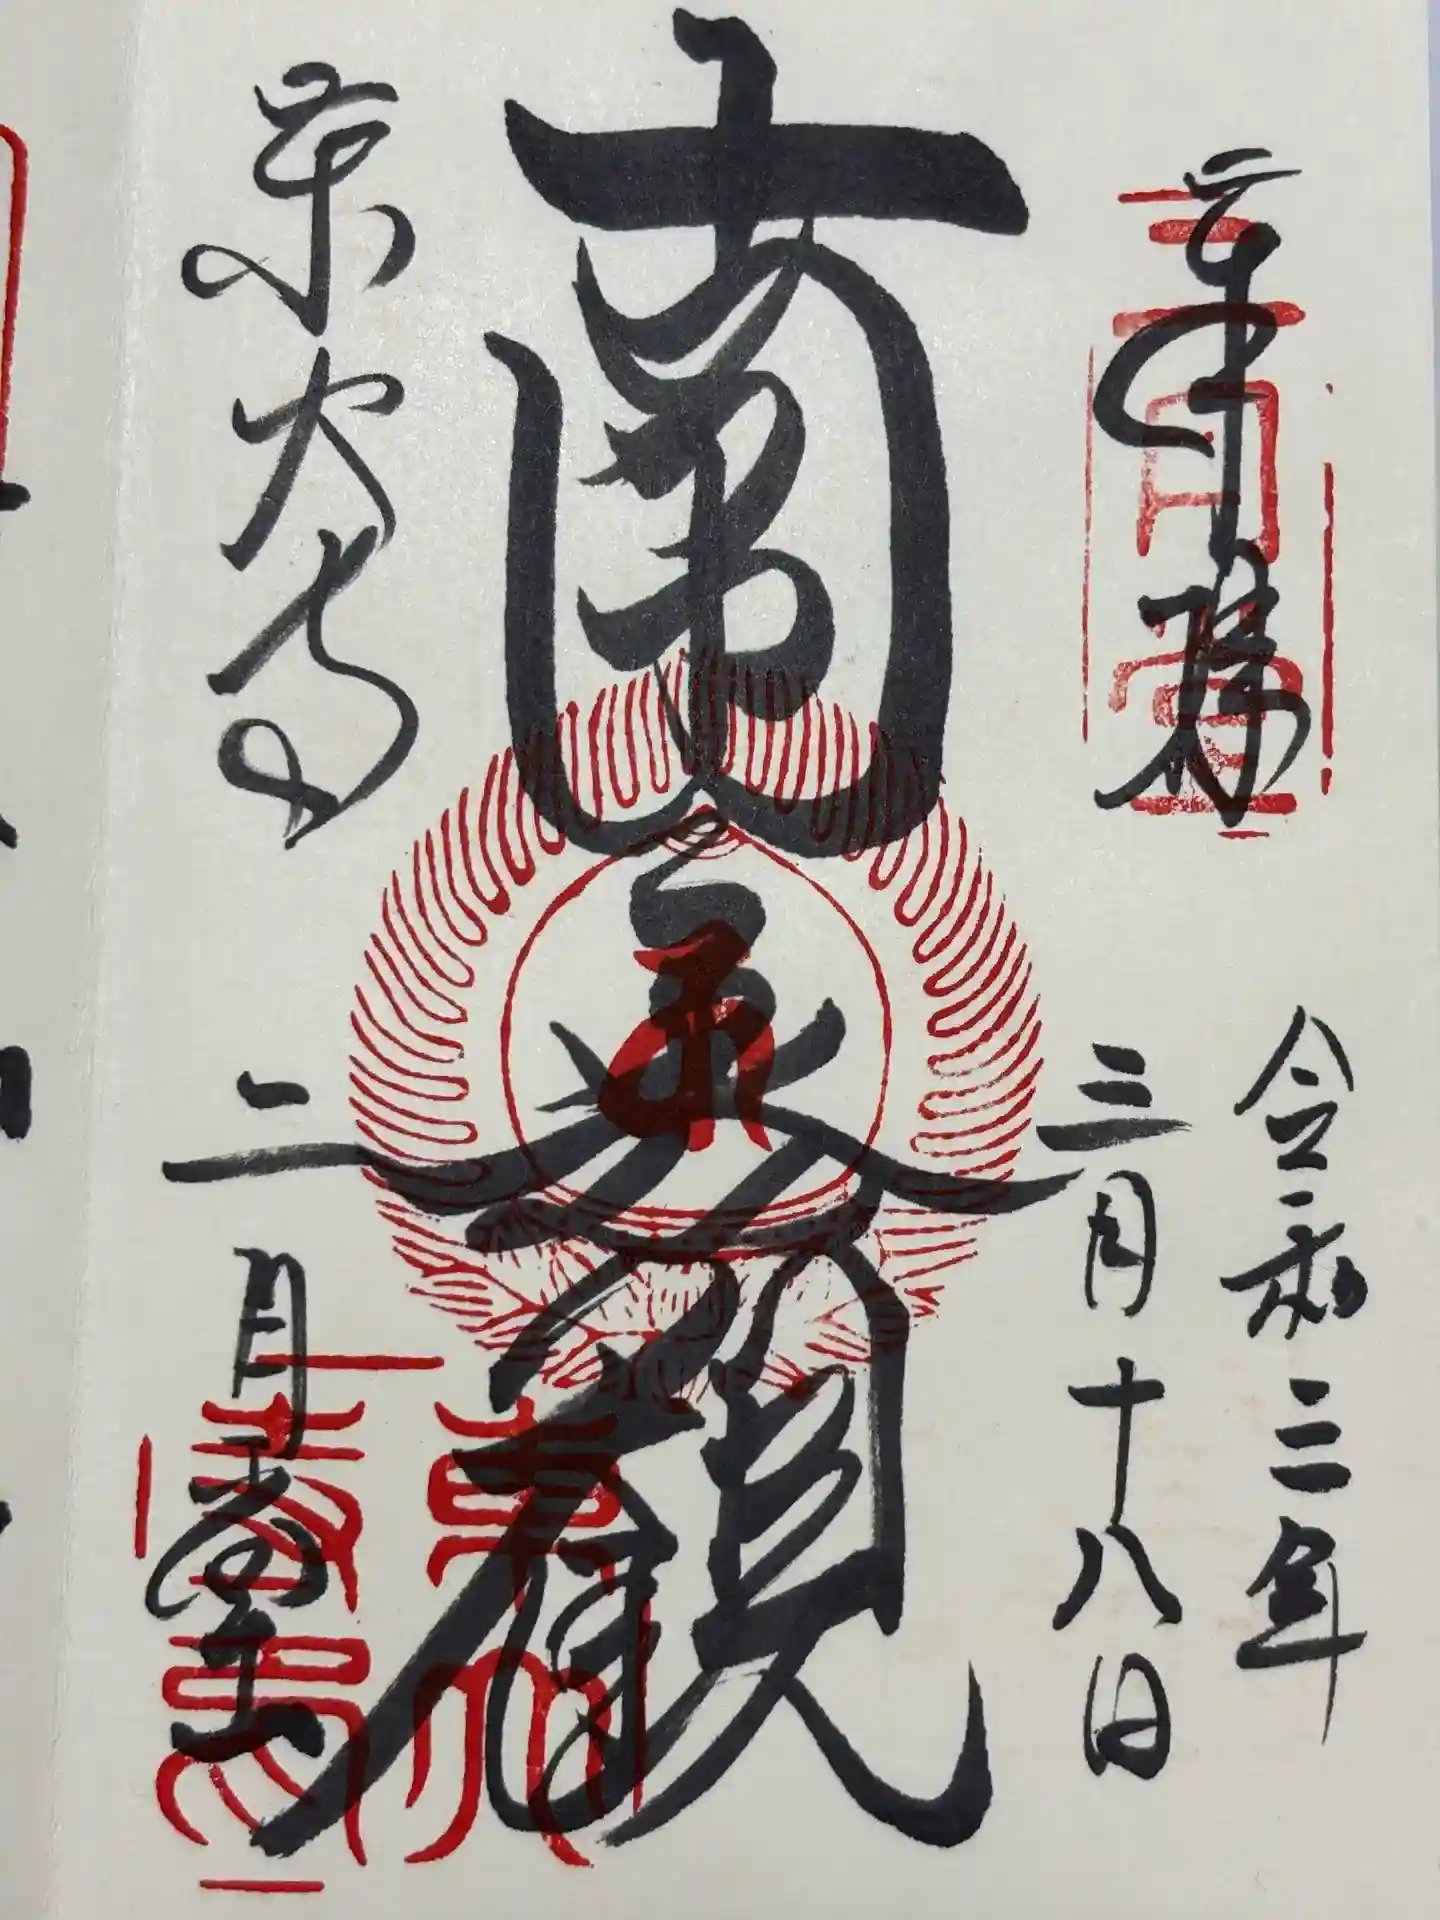 奉拝
令和三年
三月十八日
南無観
東大寺
二月堂